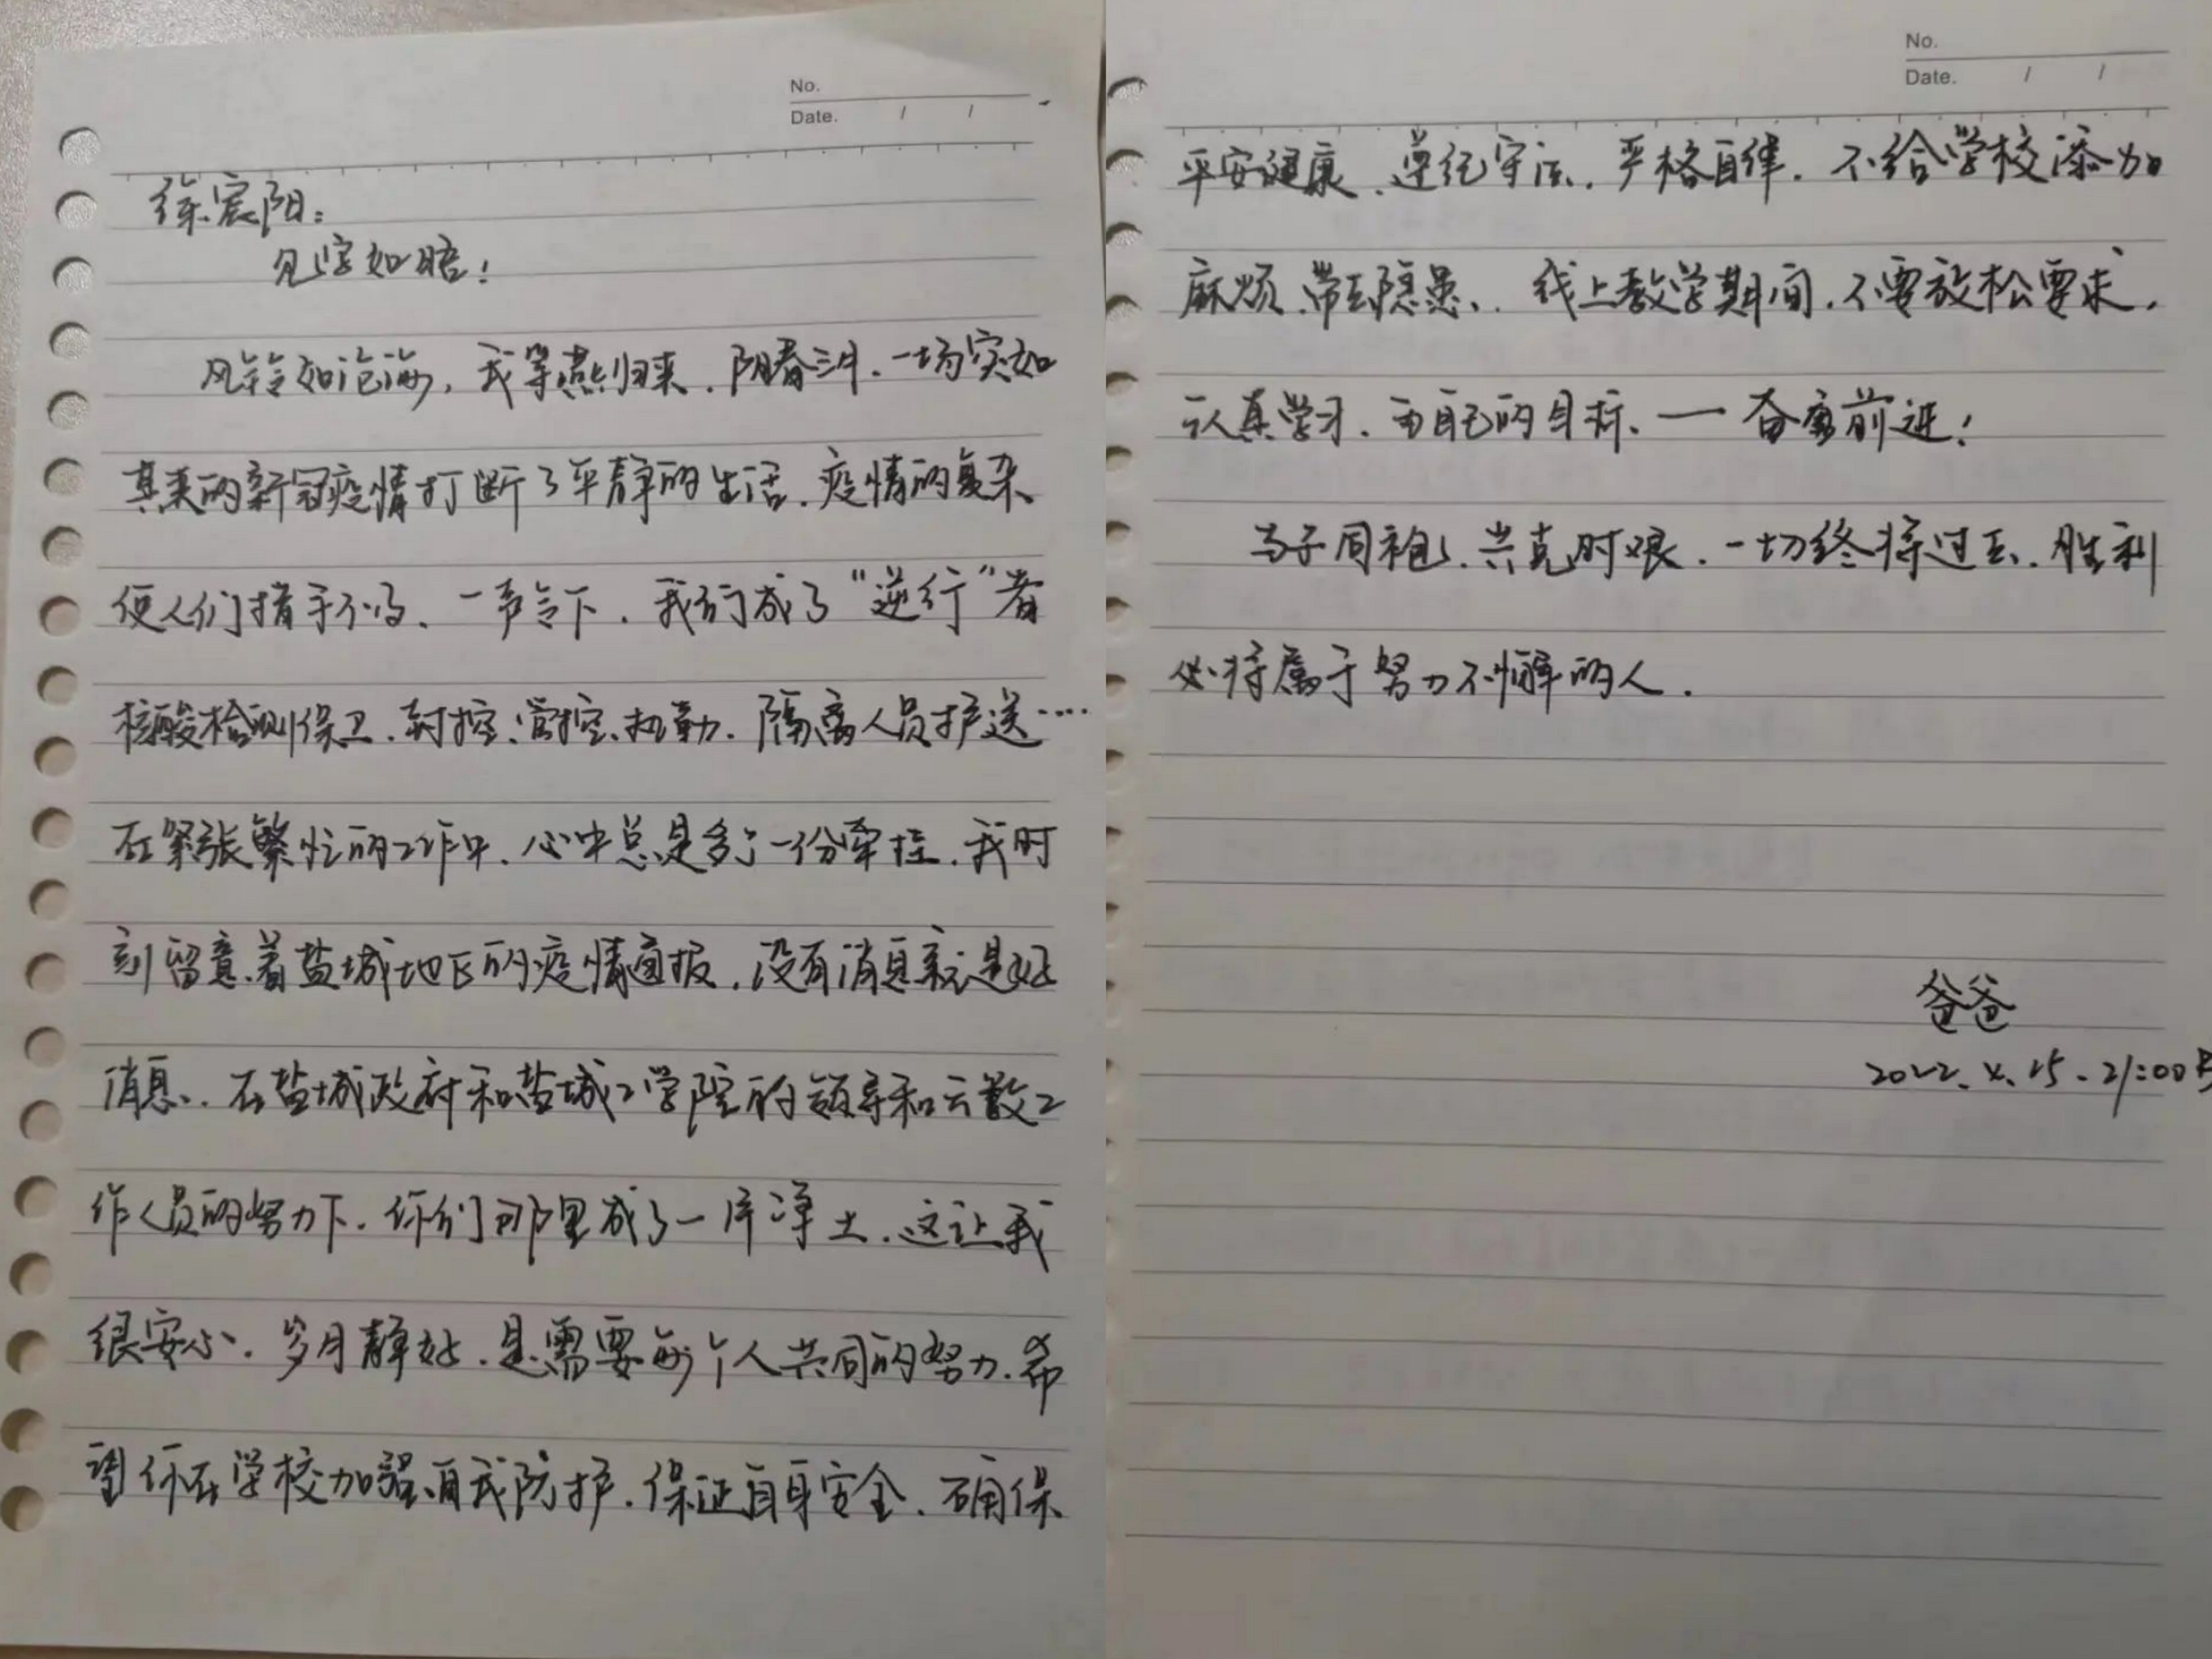 No.
Date. / /
徐宸阳:
见字如晤!
风铃如沧海,我等燕归来.阳春三月.一场突如
其来的新冠疫情打断了平静的生活.疫情的复杂
使人们措手不及.一声令下.我们成了"逆行"者
核酸检测保卫.封控、管控、执勤.隔离人员护送……
在紧张繁忙的工作中.心中总是多了一份牵挂.我时
刻留意着盐城地区的疫情通报.没有消息就是好
消息.在盐城政府和盐城工学院的领导和云数工
作人员的努力下.你们那里成了一片净土.这让我
很安心.岁月静好.是需要每个人共同的努力.希
望你在学校加强自我防护.保证自身安全.确保
No.
Date. / /
平安健康.遵纪守法.严格自律.不给学校添加
麻烦.带去隐患.线上教学期间.不要放松要求.
认真学习.向自己的目标.一奋勇前进!
与子同袍.共克时艰.一切终将过去.胜利
必将属于努力不懈的人.
爸爸
2022.4.15.21:00时